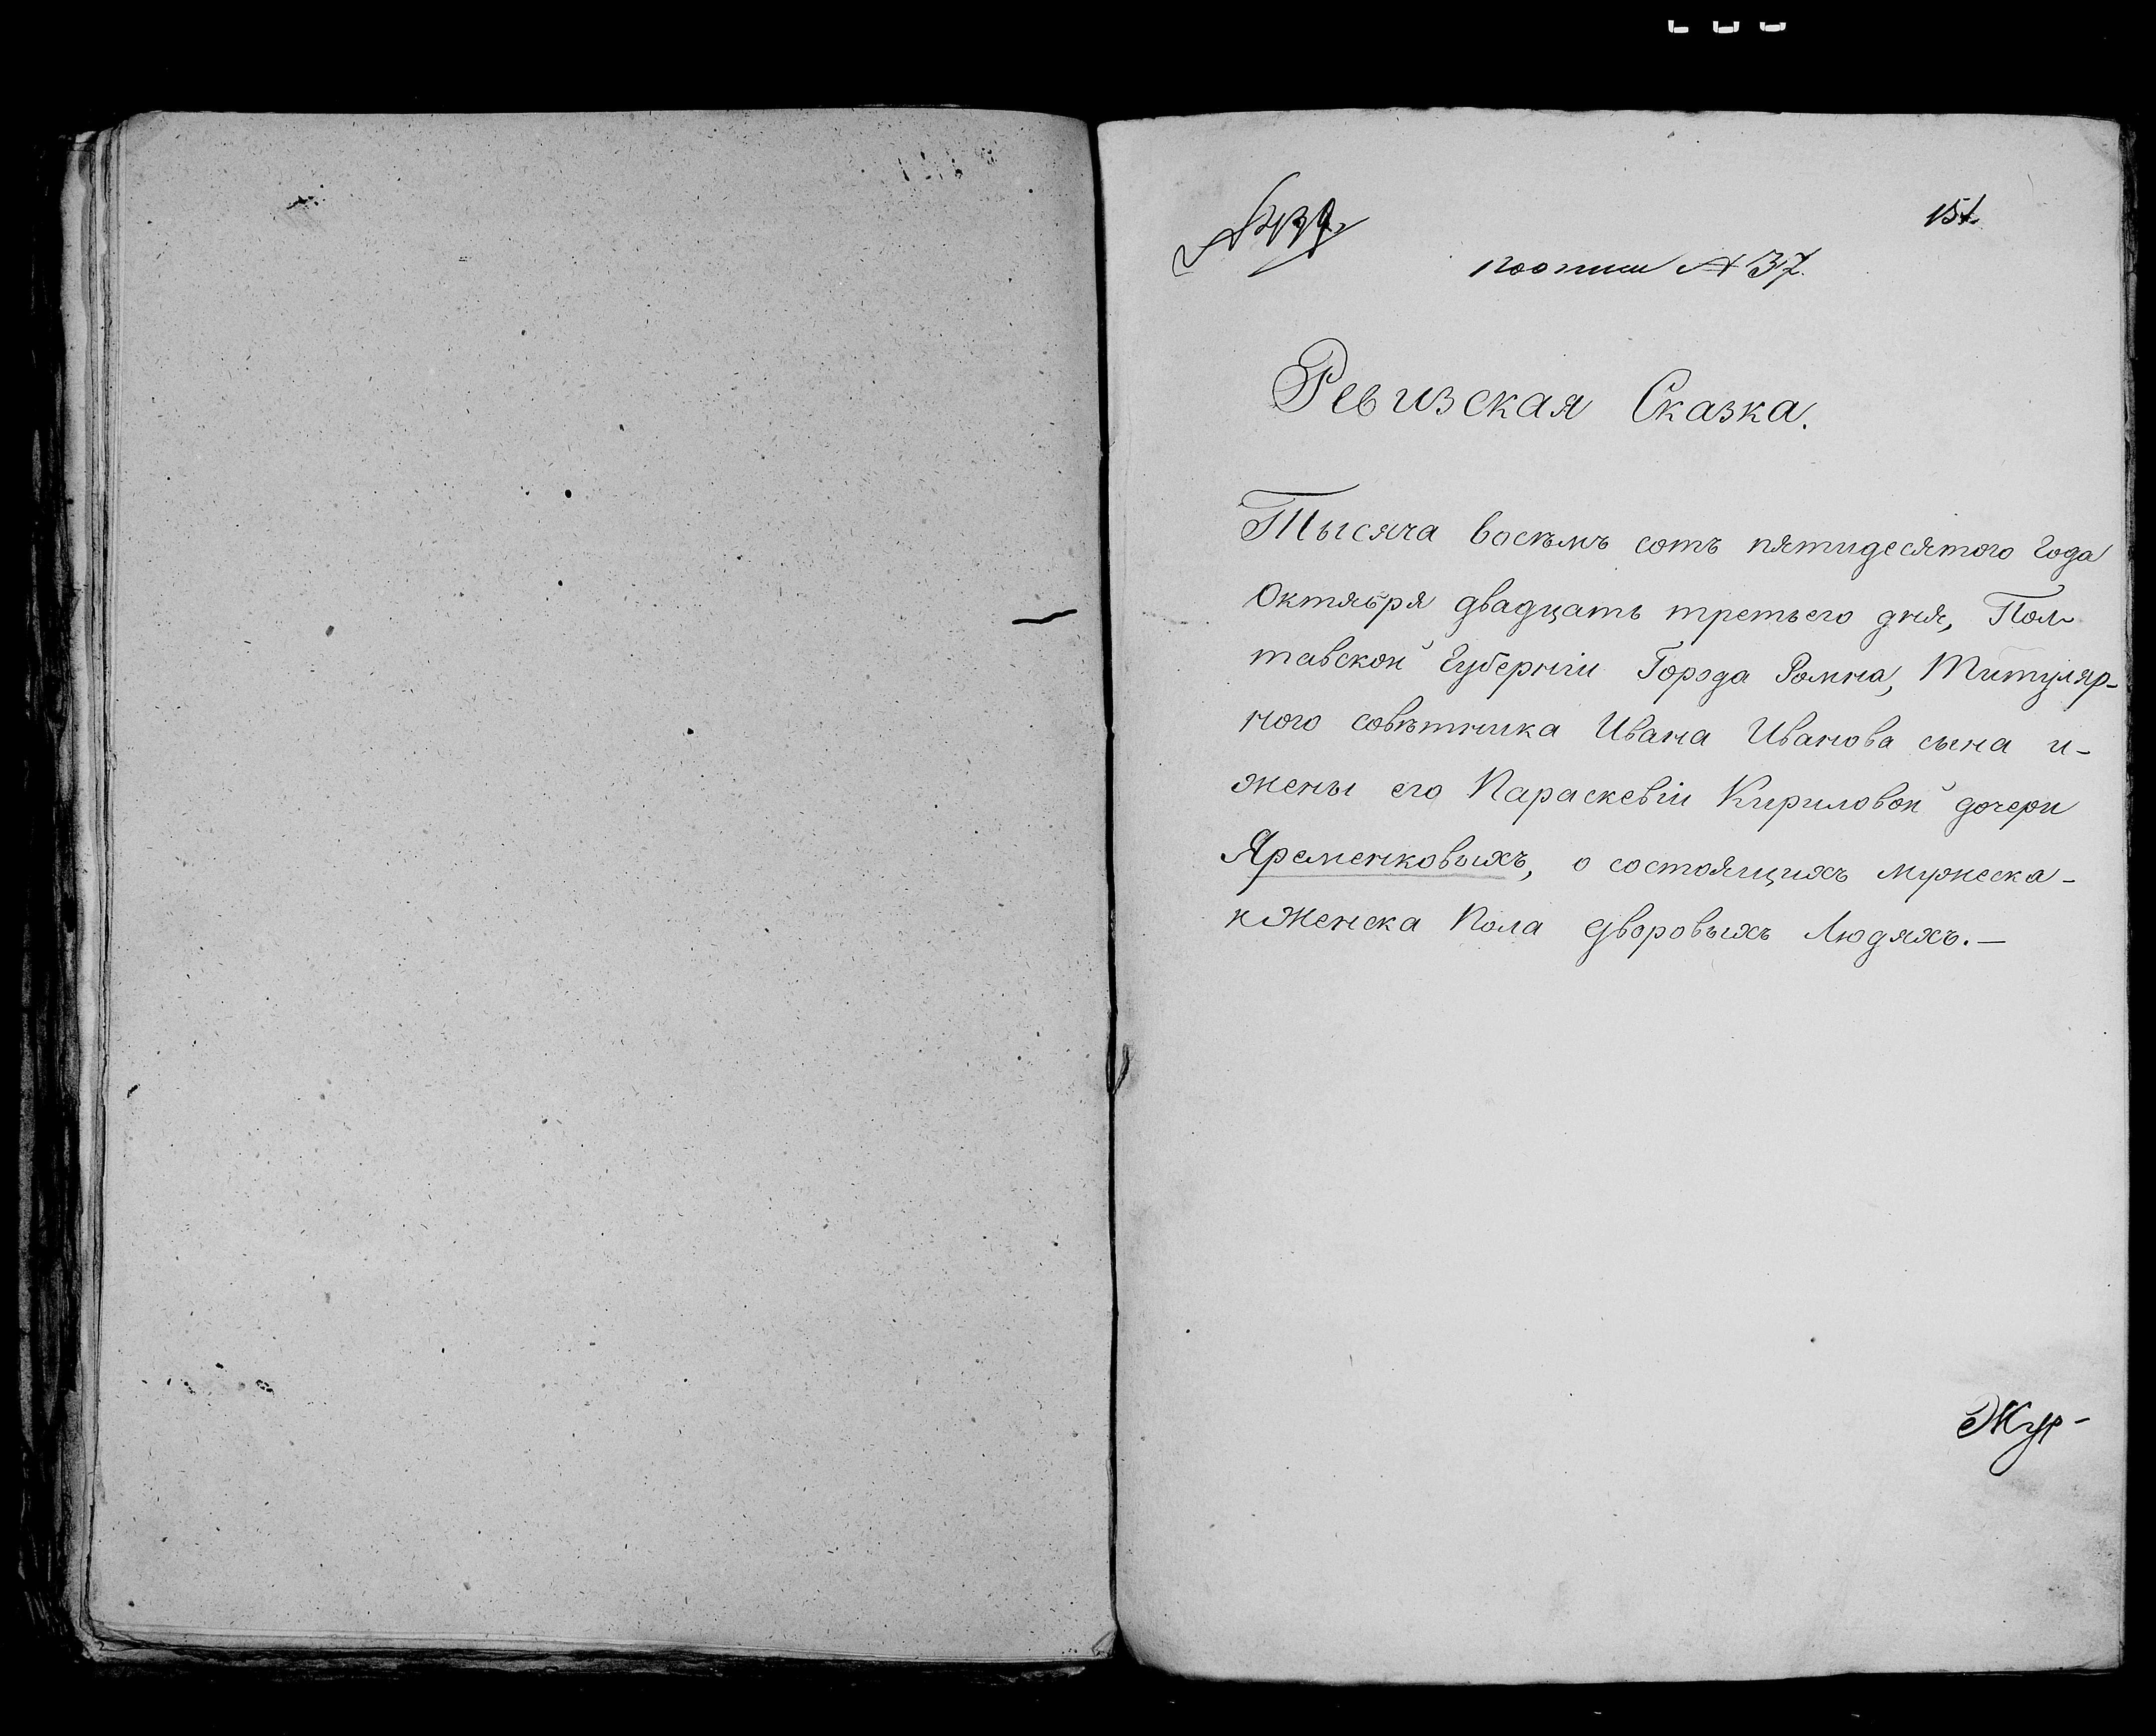 151.
по описи № 37.
Ревизская Сказка.
Тысяча восѣмъ сотъ пятидесятого Года
Октября двадцать третьего дня, Пол-
тавской Губерніи Города Ромна, Титуляр-
ного совѣтника Ивана Иванова сына и-
жены его Параскевіи Кириловой дочери
Яременковыхъ, о состоящихъ мужеска-
и Женска Пола дворовыхъ Людяхъ.—
Жур-